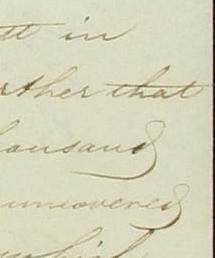 tt in
rther that
housand
uncovered
which